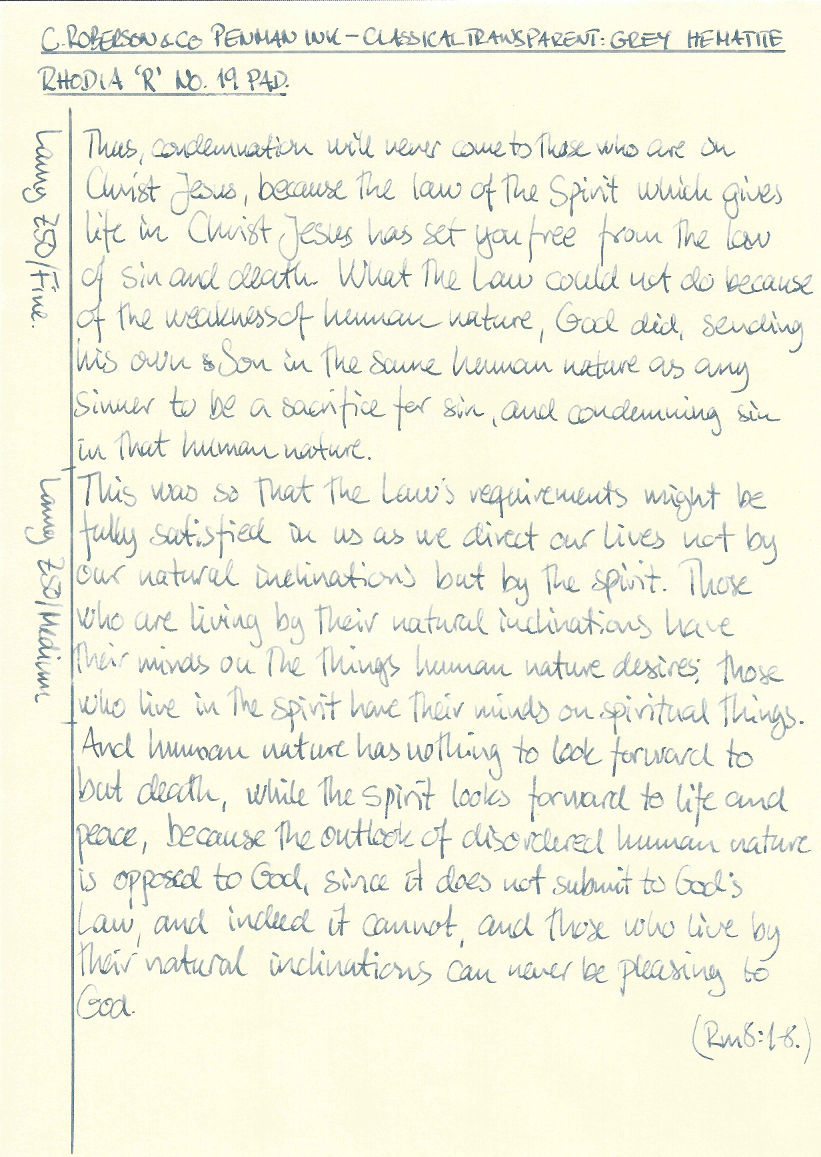 C. ROBERSON & CO PENMAN INK – CLASSICAL TRANSPARENT: GREY HEMATITE
RHODIA 'R' NO. 19 PAD.
Lamy Z50/Fine.
Thus, condemnation will never come to those who are in
Christ Jesus, because the law of the Spirit which gives
life in Christ Jesus has set you free from the law
of sin and death. What the Law could not do because
of the weakness of human nature, God did, sending
his own Son in the same human nature as any
sinner to be a sacrifice for sin, and condemning sin
in that human nature.
Lamy Z50/Medium
This was so that the Law's requirements might be
fully satisfied in us as we direct our lives not by
our natural inclinations but by the spirit. Those
who are living by their natural inclinations have
their minds on the things human nature desires; those
who live in the spirit have their minds on spiritual things.
And human nature has nothing to look forward to
but death, while the spirit looks forward to life and
peace, because the outlook of disordered human nature
is opposed to God, since it does not submit to God's
Law, and indeed it cannot, and those who live by
their natural inclinations can never be pleasing to
God.
(Rm 8:1-8.)